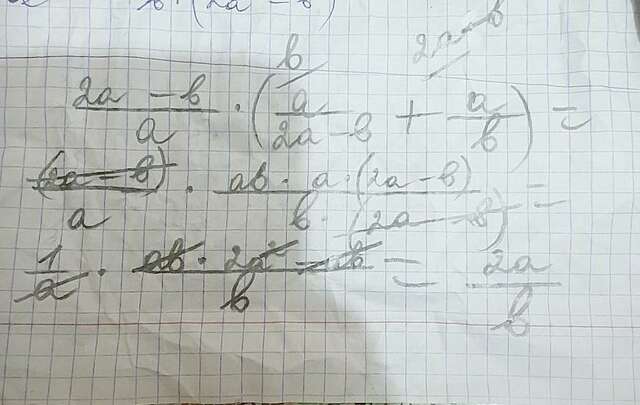 b · (2a - b)
b 2a - b
(2a - b)/a · (a/(2a - b) + a/b) =
(2a - b)/a · (ab · a · (2a - b))/(b · (2a - b)) =
1/a · (ab · 2a² - b)/b = 2a/b